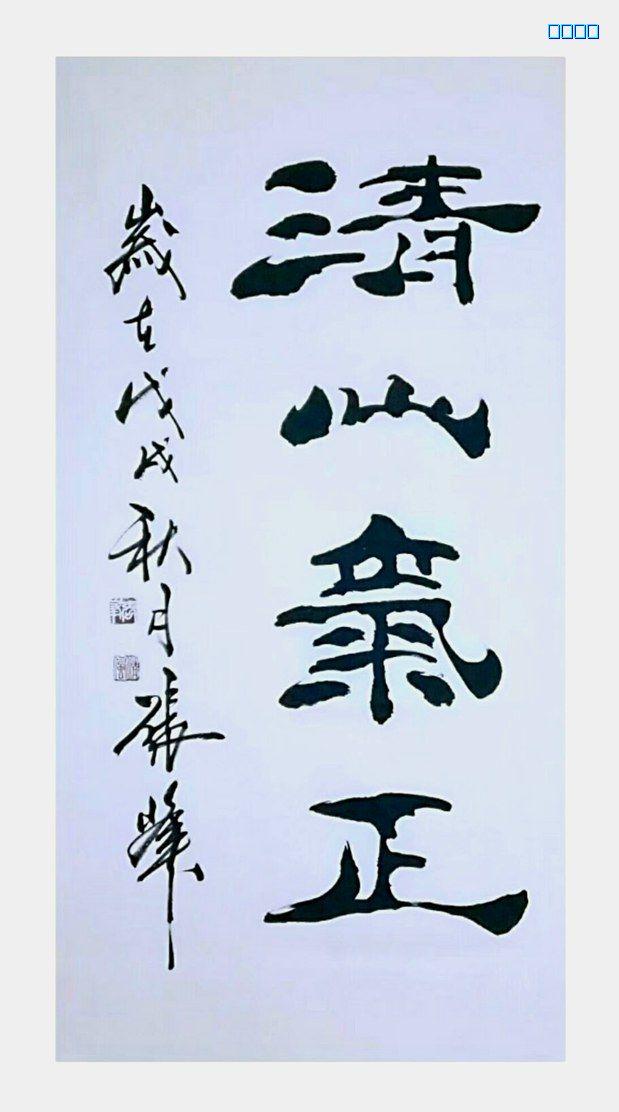 清心氣正
歲在戊戌秋月張峰